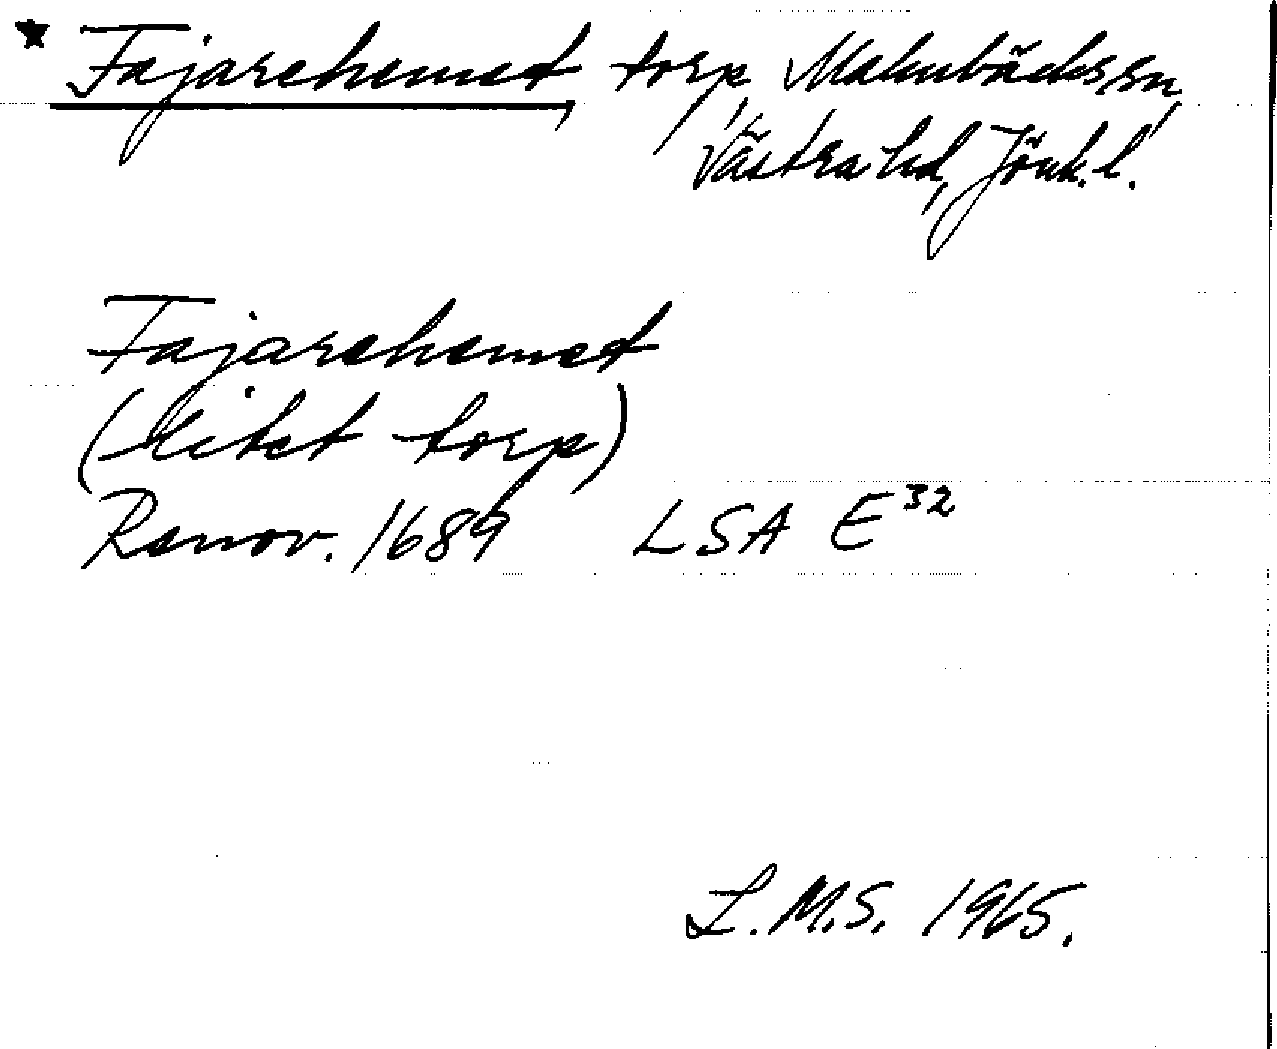 * Fajarehemet, torp, Malmbäcks sn,
Västra hd, Jönk. l.
Fajarehemet
(litet torp)
Renov. 1689 LSA E³²
L.M.S. 1965.